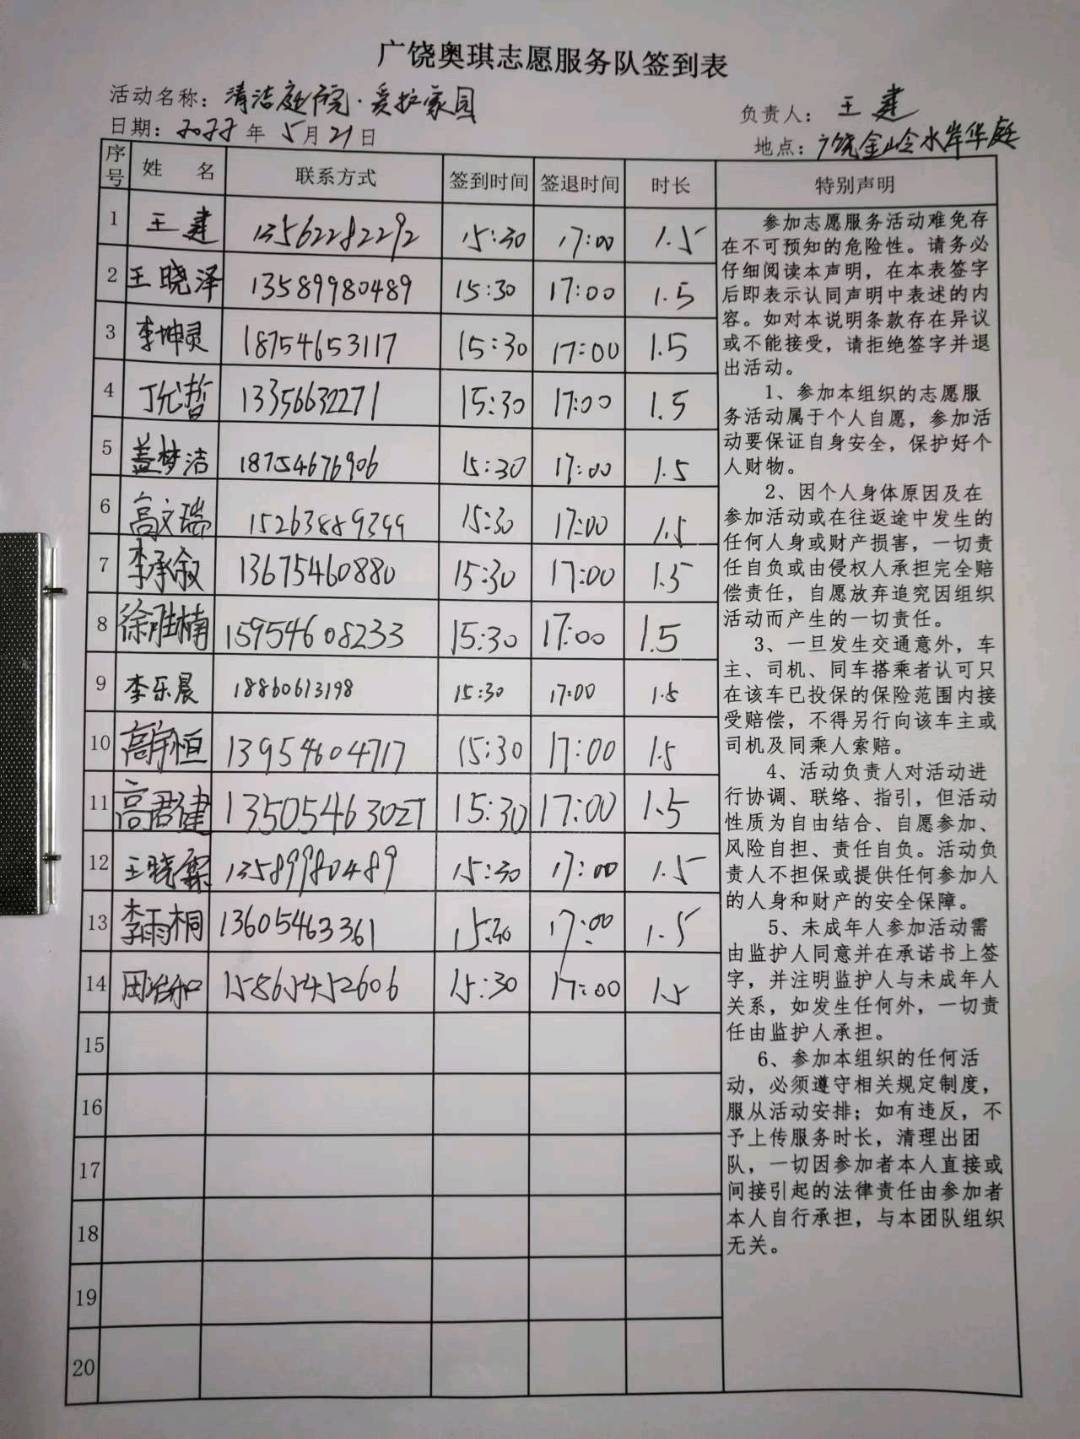 广饶奥琪志愿服务队签到表
活动名称：清洁庭院·爱护家园
负责人：王建
日期：2022年5月21日
地点：广饶金岭水岸华庭
序号 姓名 联系方式 签到时间 签退时间 时长 特别声明
1 王建 13562282292 15:30 17:00 1.5
2 王晓泽 13589980489 15:30 17:00 1.5
3 李坤灵 18754653117 15:30 17:00 1.5
4 丁允哲 13356632271 15:30 17:00 1.5
5 盖梦洁 18754676906 15:30 17:00 1.5
6 高文瑞 15263889399 15:30 17:00 1.5
7 李承叙 13675460880 15:30 17:00 1.5
8 徐胜楠 15954608233 15:30 17:00 1.5
9 李乐晨 18860613198 15:30 17:00 1.5
10 高宇恒 13954604717 15:30 17:00 1.5
11 高君健 13505463027 15:30 17:00 1.5
12 王晓霖 13589980489 15:30 17:00 1.5
13 李雨桐 13605463361 15:30 17:00 1.5
14 田 15865452606 15:30 17:00 1.5
15
16
17
18
19
20
参加志愿服务活动难免存
在不可预知的危险性。请务必
仔细阅读本声明，在本表签字
后即表示认同声明中表述的内
容。如对本说明条款存在异议
或不能接受，请拒绝签字并退
出活动。
1、参加本组织的志愿服
务活动属于个人自愿，参加活
动要保证自身安全，保护好个
人财物。
2、因个人身体原因及在
参加活动或在往返途中发生的
任何人身或财产损害，一切责
任自负或由侵权人承担完全赔
偿责任，自愿放弃追究因组织
活动而产生的一切责任。
3、一旦发生交通意外，车
主、司机、同车搭乘者认可只
在该车已投保的保险范围内接
受赔偿，不得另行向该车主或
司机及同乘人索赔。
4、活动负责人对活动进
行协调、联络、指引，但活动
性质为自由结合、自愿参加、
风险自担、责任自负。活动负
责人不担保或提供任何参加人
的人身和财产的安全保障。
5、未成年人参加活动需
由监护人同意并在承诺书上签
字，并注明监护人与未成年人
关系，如发生任何外，一切责
任由监护人承担。
6、参加本组织的任何活
动，必须遵守相关规定制度，
服从活动安排；如有违反，不
予上传服务时长，清理出团
队，一切因参加者本人直接或
间接引起的法律责任由参加者
本人自行承担，与本团队组织
无关。